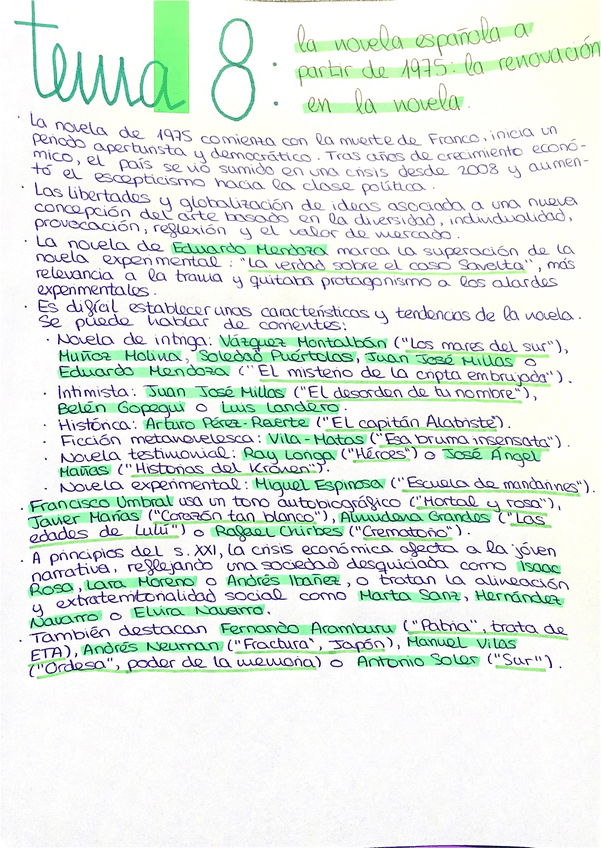 tema 8: la novela española a
partir de 1975: la renovación
en la novela.
· La novela de 1975 comienza con la muerte de Franco, inicia un
periodo aperturista y democrático. Tras años de crecimiento econó-
mico, el país se vio sumido en una crisis desde 2008 y aumen-
tó el escepticismo hacia la clase política.
· Las libertades y globalización de ideas asociada a una nueva
concepción del arte basado en la diversidad, individualidad,
provocación, reflexión y el valor de mercado.
· La novela de Eduardo Mendoza marca la superación de la
novela experimental: "la verdad sobre el caso Savolta", más
relevancia a la trama y quitaba protagonismo a los alardes
experimentales.
· Es difícil establecer unas características y tendencias de la novela.
Se puede hablar de corrientes:
· Novela de intriga: Vázquez Montalbán ("Los mares del sur"),
Muñoz Molina, Soledad Puértolas, Juan José Millas o
Eduardo Mendoza ("El misterio de la cripta embrujada").
· Intimista: Juan José Millas ("El desorden de tu nombre"),
Belén Gopegui o Luis Landero.
· Histórica: Arturo Pérez-Reerte ("El capitán Alatriste").
· Ficción metanovelesca: Vila-Matas ("Esa bruma insensata").
· Novela testimonial: Ray Longa ("Héroes") o José Ángel
Mañas ("Historias del Kronen").
· Novela experimental: Miguel Espinosa ("Escuela de mandarines").
· Francisco Umbral usa un tono autobiográfico ("Mortal y rosa"),
Javier Marías ("Corazón tan blanco"), Almudena Grandes ("Las
edades de Lulú") o Rafael Chirbes ("Crematorio").
· A principios del s. XXI, la crisis económica afecta a la jóven
narrativa, reflejando una sociedad desquiciada como Isaac
Rosa, Lara Moreno o Andrés Ibañez, o tratan la alineación
y extraterritorialidad social como Marta Sanz, Hernández
Navarro o Elvira Navarro.
· También destacan Fernando Aramburu ("Patria", trata de
ETA), Andrés Neuman ("Fractura", Japón), Manuel Vilas
("Ordesa", poder de la memoria) o Antonio Soler ("Sur").